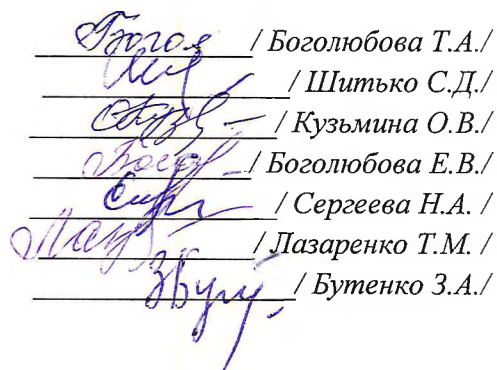 Богол / Боголюбова Т.А./
/ Шитько С.Д./
/ Кузьмина О.В./
/ Боголюбова Е.В./
/ Сергеева Н.А. /
/ Лазаренко Т.М. /
/ Бутенко З.А./